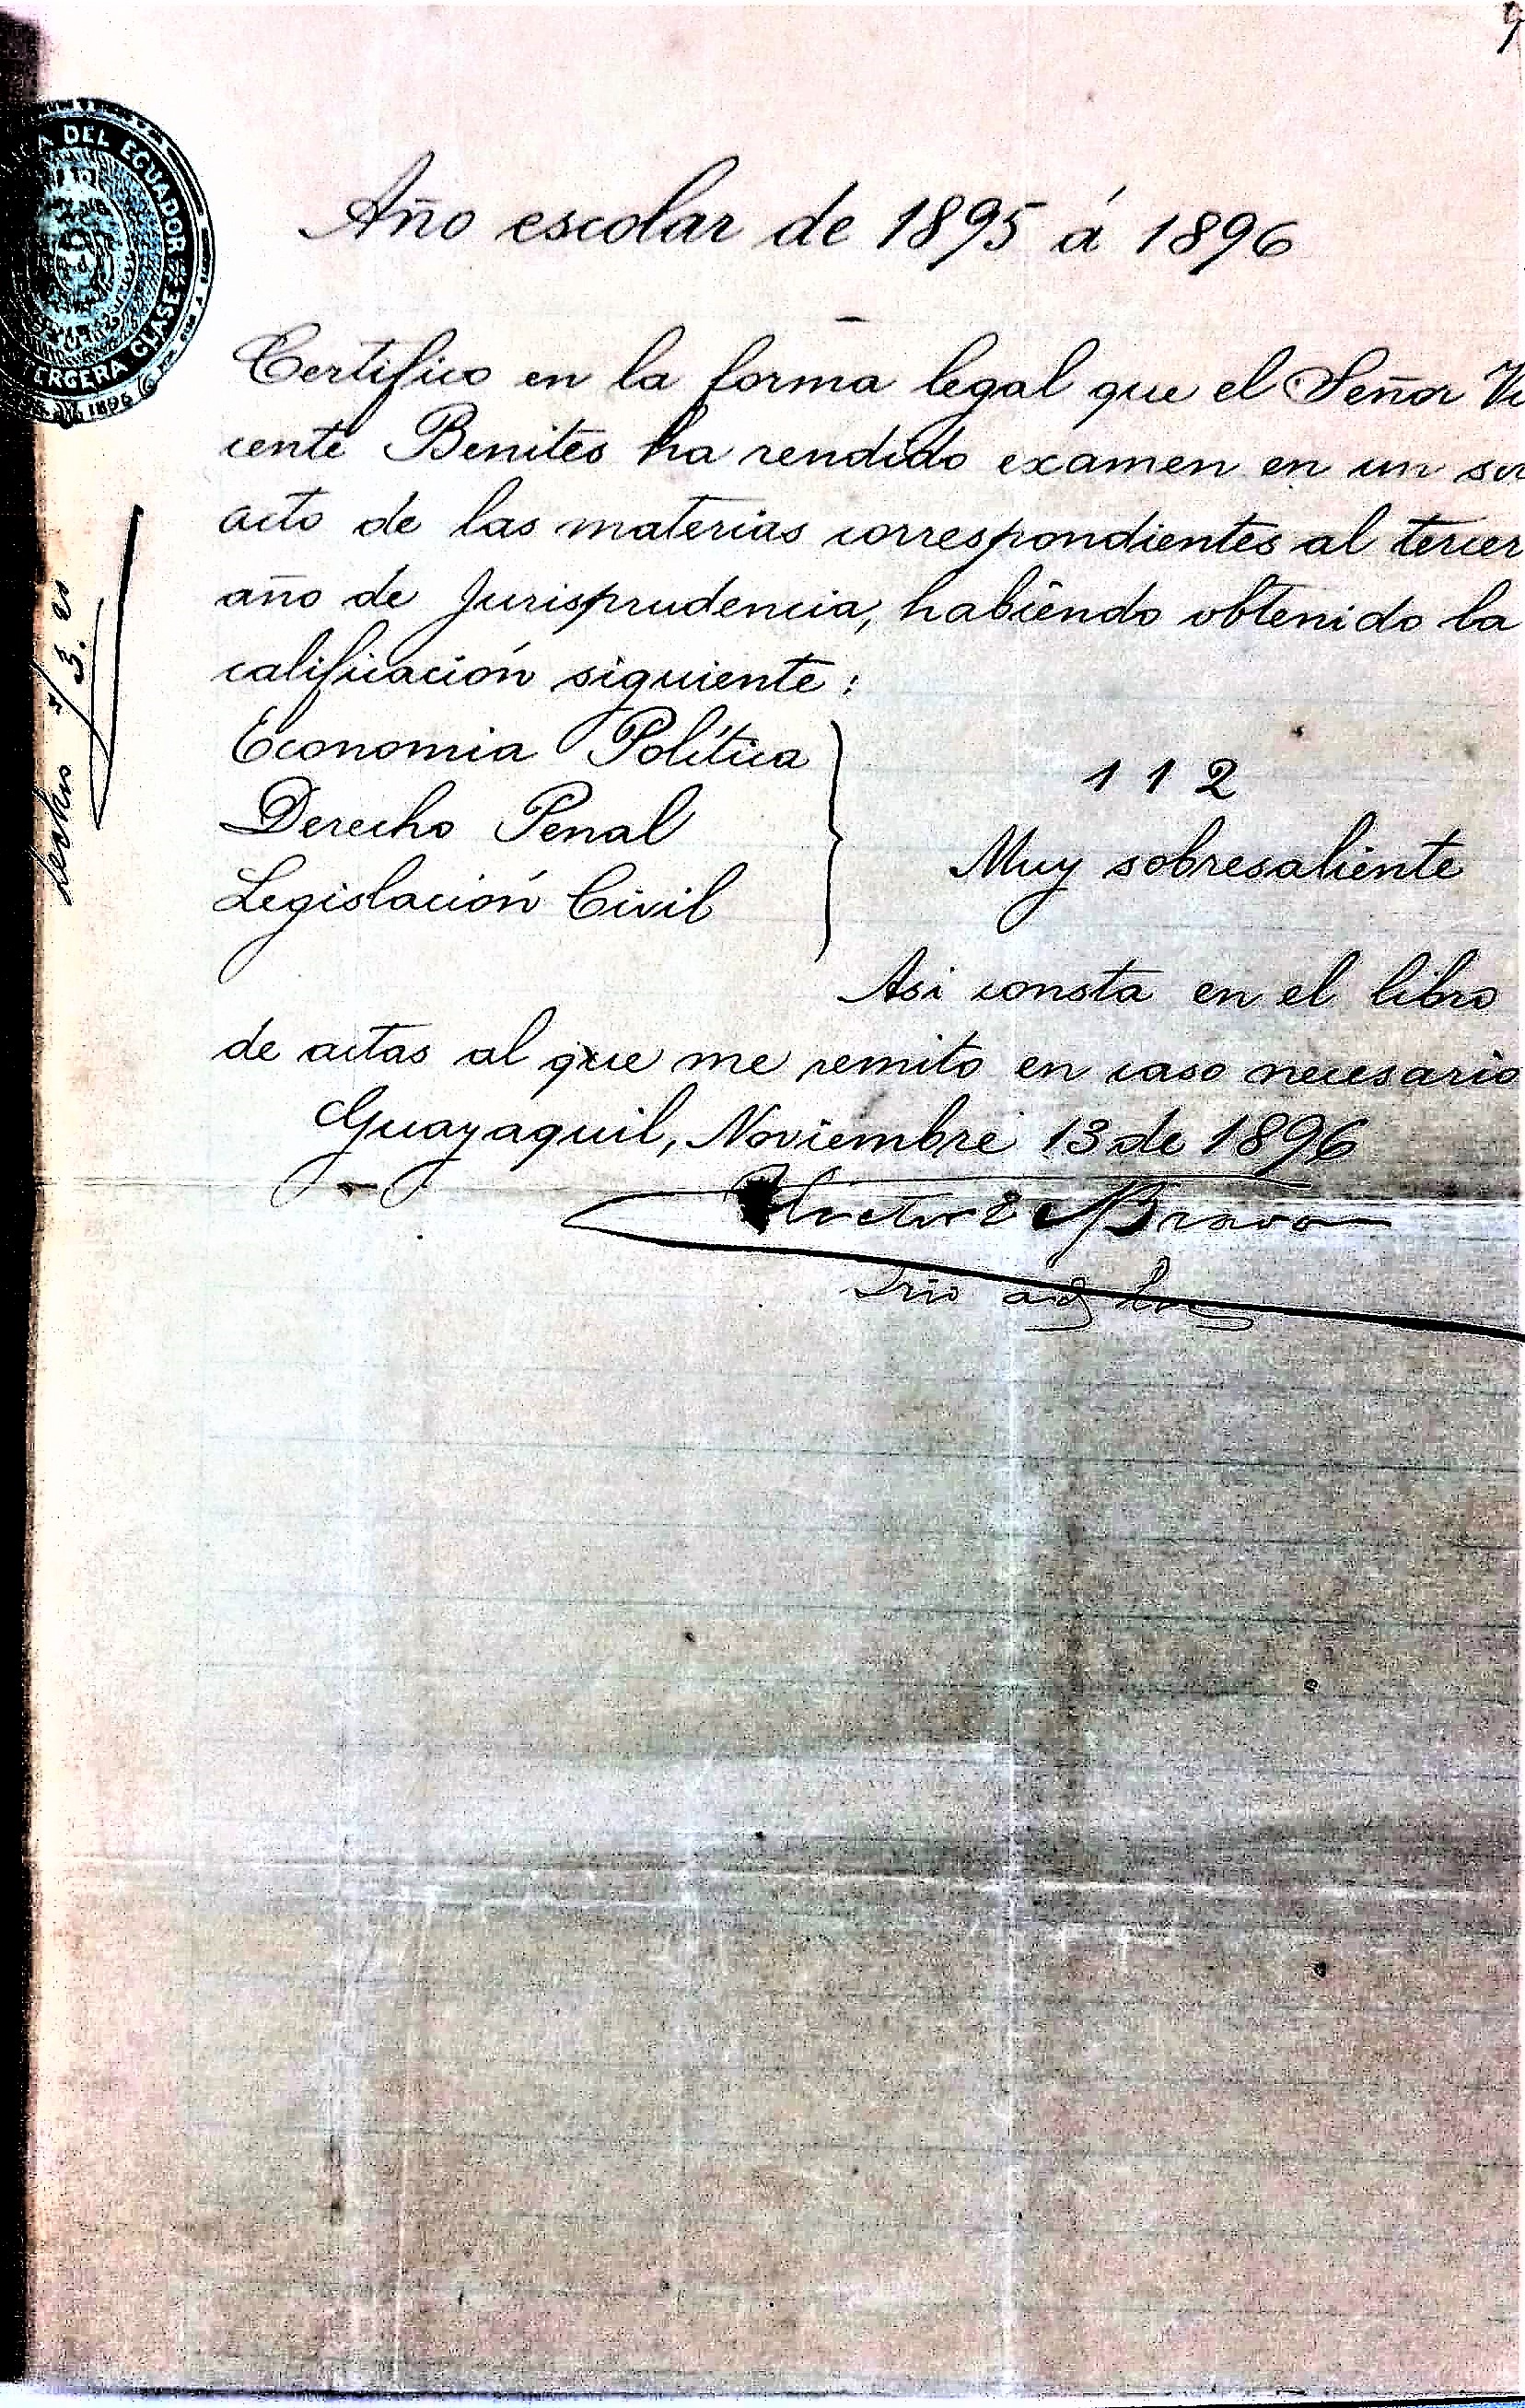 9
A DEL ECUADOR
TERCERA CLASE
1896
Año escolar de 1895 á 1896
Certifico en la forma legal que el Señor Vi
cente Benites ha rendido examen en un so
acto de las materias correspondientes al tercer
año de Jurisprudencia, habiendo obtenido la
calificación siguiente:
Economia Política
Derecho Penal
Legislación Civil
1 1 2
Muy sobresaliente
Asi consta en el libro
de actas al que me remito en caso necesario
Guayaquil, Noviembre 13 de 1896
Victor E Bravo
Srio